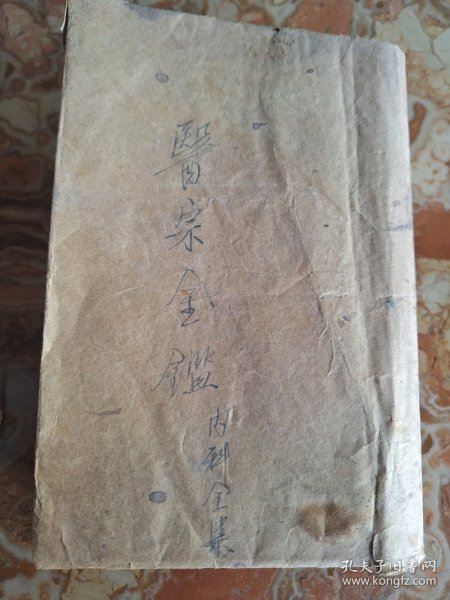 醫宗金鑑
内科全集
孔夫子旧书网
www.kongfz.com